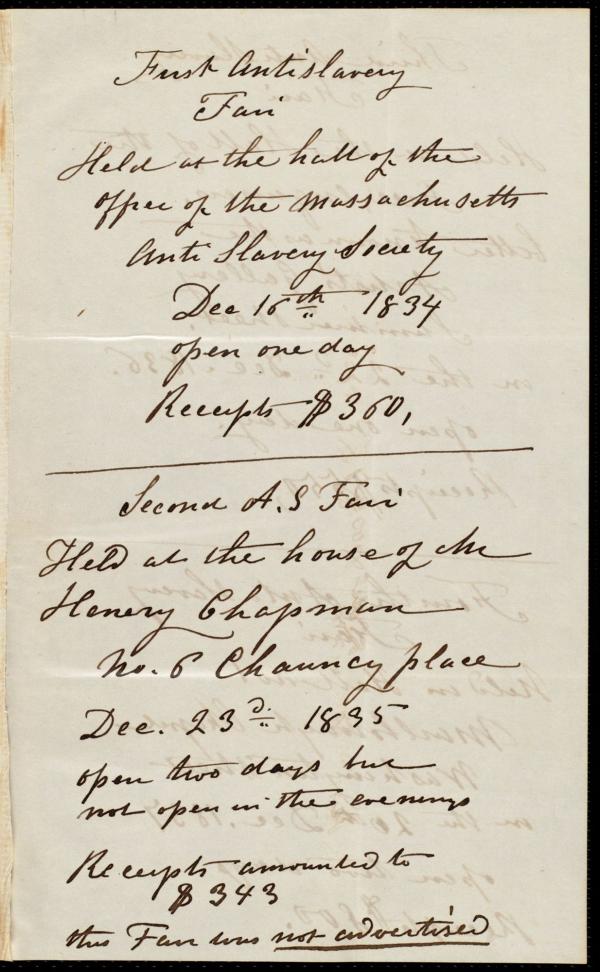 First Antislavery
Fair
Held at the hall of the
office of the Massachusetts
Anti Slavery Society
Dec 16th 1834
open one day
Receipts $360,
Second A. S Fair
Held at the house of Mr
Henery Chapman
No. 6 Chauncy place
Dec. 23d. 1835
open two days but
not open in the evenings
Receipts amounted to
$343
this Fair was not advertised